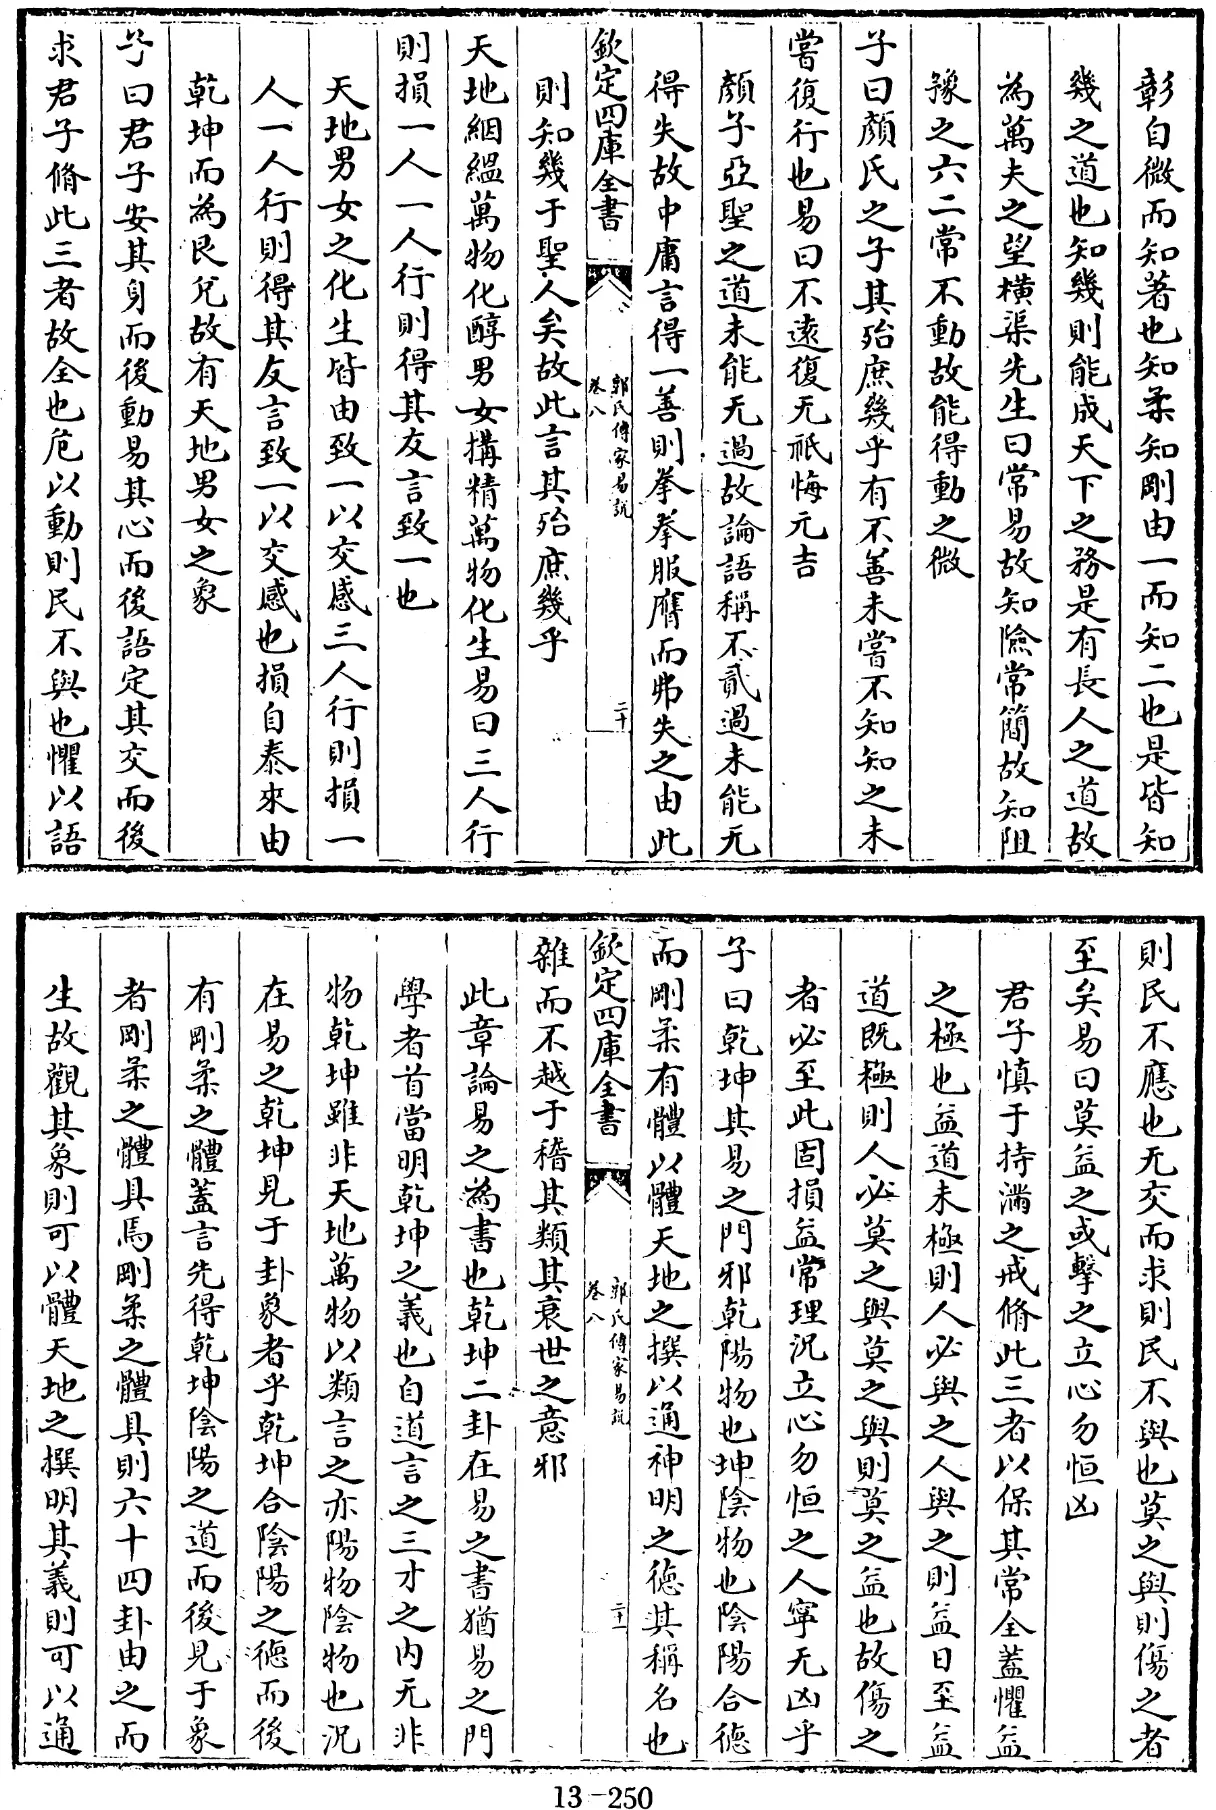 彰自微而知著也知柔知剛由一而知二也是皆知
幾之道也知幾則能成天下之務是有長人之道故
為萬夫之望橫渠先生曰常易故知險常簡故知阻
豫之六二常不動故能得動之微
子曰顏氏之子其殆庶幾乎有不善未嘗不知知之未
嘗復行也易曰不遠復无祇悔元吉
顏子亞聖之道未能无過故論語稱不貳過未能无
得失故中庸言得一善則拳拳服膺而弗失之由此
欽定四庫全書
郭氏傳家易說
卷八
二十
則知幾于聖人矣故此言其殆庶幾乎
天地絪縕萬物化醇男女搆精萬物化生易曰三人行
則損一人一人行則得其友言致一也
天地男女之化生皆由致一以交感三人行則損一
人一人行則得其友言致一以交感也損自泰來由
乾坤而為艮兌故有天地男女之象
子曰君子安其身而後動易其心而後語定其交而後
求君子脩此三者故全也危以動則民不與也懼以語
則民不應也无交而求則民不與也莫之與則傷之者
至矣易曰莫益之或擊之立心勿恒凶
君子慎于持滿之戒脩此三者以保其常全蓋懼益
之極也益道未極則人必與之人與之則益日至益
道既極則人必莫之與莫之與則莫之益也故傷之
者必至此固損益常理況立心勿恒之人寧无凶乎
子曰乾坤其易之門邪乾陽物也坤陰物也陰陽合德
而剛柔有體以體天地之撰以通神明之德其稱名也
欽定四庫全書
郭氏傳家易說
卷八
二十一
雜而不越于稽其類其衰世之意邪
此章論易之為書也乾坤二卦在易之書猶易之門
學者首當明乾坤之義也自道言之三才之內无非
物乾坤雖非天地萬物以類言之亦陽物陰物也況
在易之乾坤見于卦象者乎乾坤合陰陽之德而後
有剛柔之體蓋言先得乾坤陰陽之道而後見于象
者剛柔之體具焉剛柔之體具則六十四卦由之而
生故觀其象則可以體天地之撰明其義則可以通
13-250